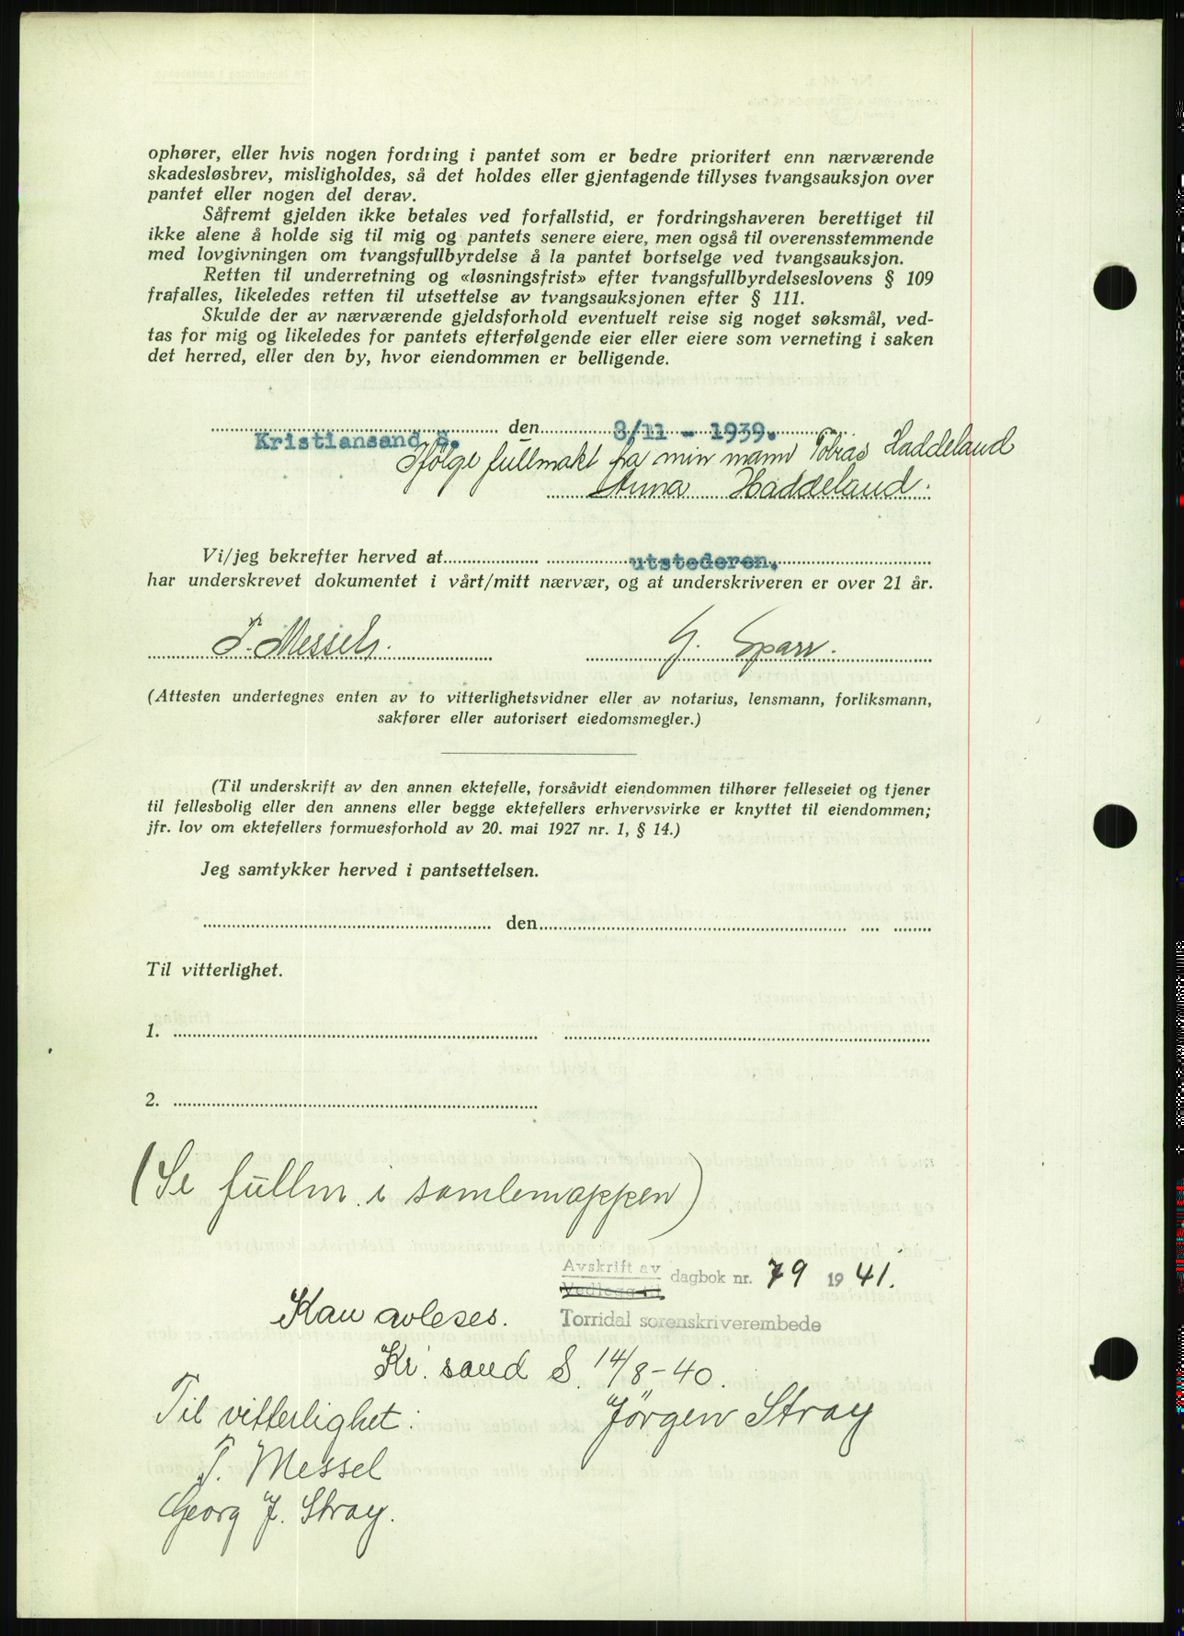 ophører, eller hvis nogen fordring i pantet som er bedre prioritert enn nærværende
skadesløsbrev, misligholdes, så det holdes eller gjentagende tillyses tvangsauksjon over
pantet eller nogen del derav.
Såfremt gjelden ikke betales ved forfallstid, er fordringshaveren berettiget til
ikke alene å holde sig til mig og pantets senere eiere, men også til overensstemmende
med lovgivningen om tvangsfullbyrdelse å la pantet bortselge ved tvangsauksjon.
Retten til underretning og «løsningsfrist» efter tvangsfullbyrdelseslovens § 109
frafalles, likeledes retten til utsettelse av tvangsauksjonen efter § 111.
Skulde der av nærværende gjeldsforhold eventuelt reise sig noget søksmål, ved-
tas for mig og likeledes for pantets efterfølgende eier eller eiere som verneting i saken
det herred, eller den by, hvor eiendommen er belligende.
Kristiansand S. den 8/11 - 1939.
Ifølge fullmakt fra min mann Tobias Haddeland
Anna Haddeland.
Vi/jeg bekrefter herved at utstederen.
har underskrevet dokumentet i vårt/mitt nærvær, og at underskriveren er over 21 år.
T. Messel. G. Sparr.
(Attesten undertegnes enten av to vitterlighetsvidner eller av notarius, lensmann, forliksmann,
sakfører eller autorisert eiedomsmegler.)
(Til underskrift av den annen ektefelle, forsåvidt eiendommen tilhører felleseiet og tjener
til fellesbolig eller den annens eller begge ektefellers erhvervsvirke er knyttet til eiendommen;
jfr. lov om ektefellers formuesforhold av 20. mai 1927 nr. 1, § 14.)
Jeg samtykker herved i pantsettelsen.
den
Til vitterlighet.
1.
2.
(Se fullm. i samlemappen)
Avskrift av
Vedlegg til dagbok nr. 79 1941.
Torridal sorenskriverembede
Kan avleses.
Kr. sand S. 14/8-40.
Til vitterlighet: Jørgen Stray
T. Messel
Georg J. Stray.